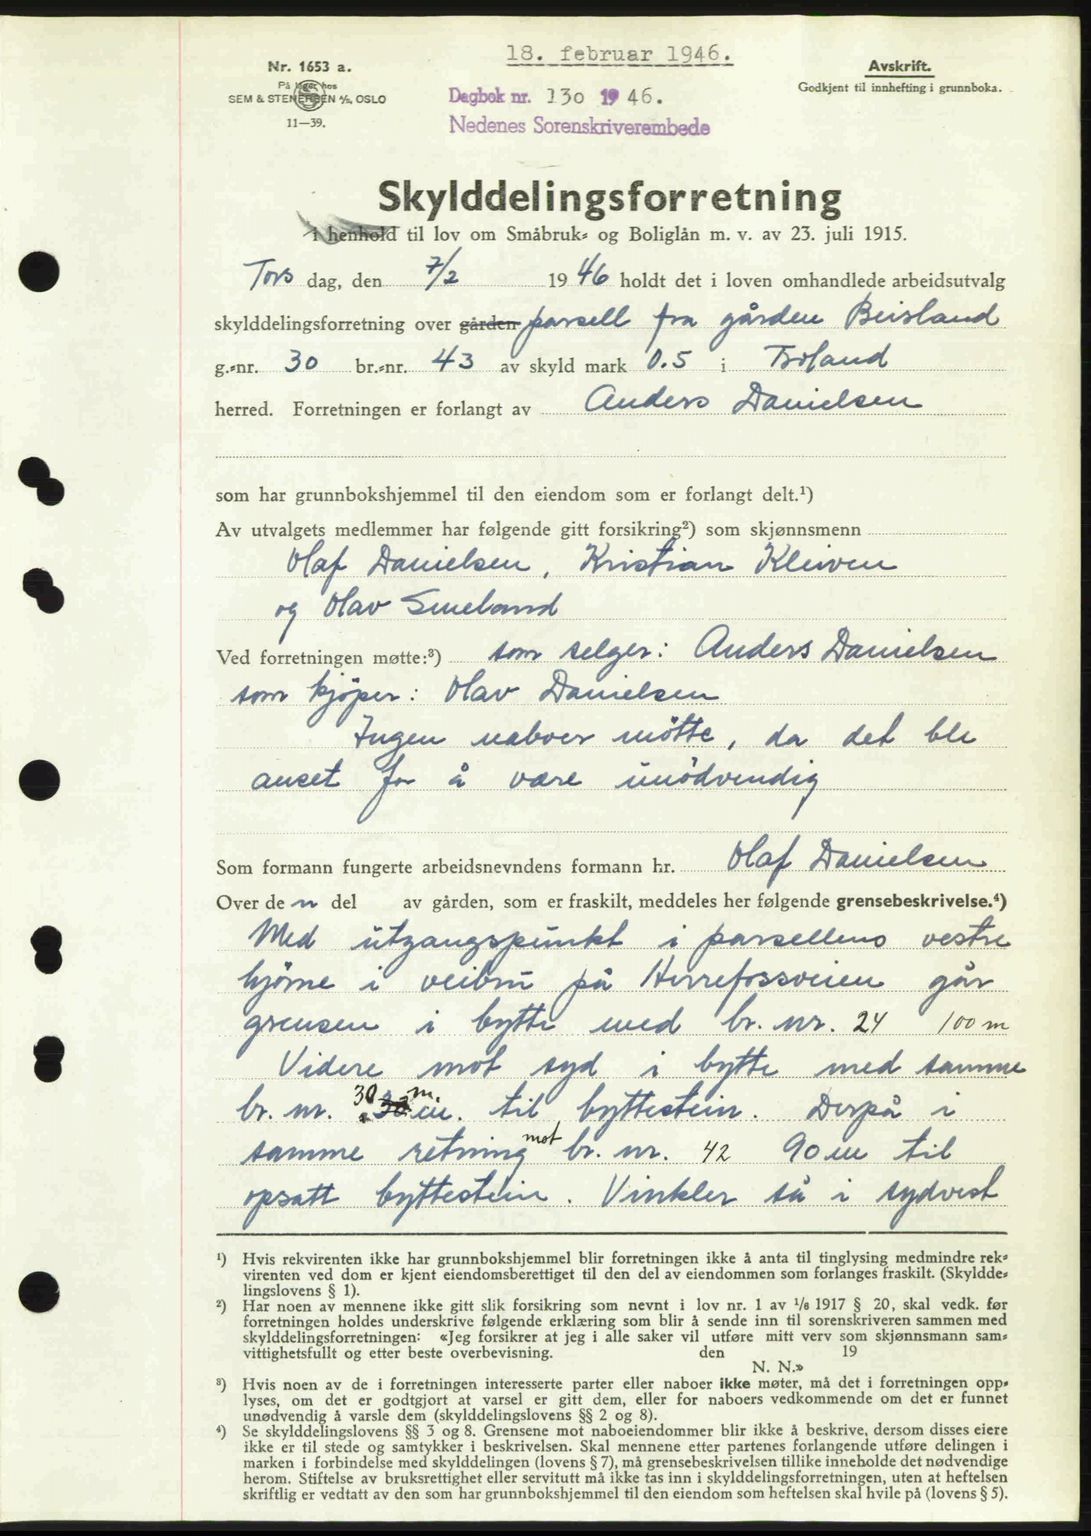 18. februar 1946.
Nr. 1653 a.
På lager hos
SEM & STENERSEN A/S, OSLO
11—39.
Dagbok nr. 130 1946.
Nedenes Sorenskriverembede
Avskrift.
Godkjent til innhefting i grunnboka.
Skylddelingsforretning
i henhold til lov om Småbruk= og Boliglån m. v. av 23. juli 1915.
Tors dag, den 7/2 1946 holdt det i loven omhandlede arbeidsutvalg
skylddelingsforretning over gården parsell fra gården Beisland
g.=nr. 30 br.=nr. 43 av skyld mark 0.5 i Froland
herred. Forretningen er forlangt av Anders Danielsen
som har grunnbokshjemmel til den eiendom som er forlangt delt.¹)
Av utvalgets medlemmer har følgende gitt forsikring²) som skjønnsmenn
Olaf Danielsen, Kristian Kleiven
og Olav Smeland
Ved forretningen møtte:³) som selger: Anders Danielsen
som kjöper: Olav Danielsen
Ingen naboer mötte, da det ble
anset for å være unödvendig
Som formann fungerte arbeidsnevndens formann hr. Olaf Danielsen
Over de n del av gården, som er fraskilt, meddeles her følgende grensebeskrivelse.⁴)
Med utgangspunkt i parsellens vestre
hjörne i veibru på Herrefossveien går
grensen i bytte med br. nr. 24 100 m
Videre mot syd i bytte med samme
br. nr. 30 m. til byttestein. Derpå i
samme retning mot br. nr. 42 90 m til
opsatt byttestein. Vinkler så i sydvest
¹) Hvis rekvirenten ikke har grunnbokshjemmel blir forretningen ikke å anta til tinglysing medmindre rek=
virenten ved dom er kjent eiendomsberettiget til den del av eiendommen som forlanges fraskilt. (Skyldde=
lingslovens § 1).
²) Har noen av mennene ikke gitt slik forsikring som nevnt i lov nr. 1 av 1/6 1917 § 20, skal vedk. før
forretningen holdes underskrive følgende erklæring som blir å sende inn til sorenskriveren sammen med
skylddelingsforretningen: «Jeg forsikrer at jeg i alle saker vil utføre mitt verv som skjønnsmann sam=
vittighetsfullt og etter beste overbevisning. den 19
N. N.»
³) Hvis noen av de i forretningen interesserte parter eller naboer ikke møter, må det i forretningen opp=
lyses, om det er godtgjort at varsel er gitt dem, eller for naboers vedkommende om det er funnet
unødvendig å varsle dem (skylddelingslovens §§ 2 og 8).
⁴) Se skylddelingslovens §§ 3 og 8. Grensene mot naboeiendommer blir ikke å beskrive, dersom disses eiere
ikke er til stede og samtykker i beskrivelsen. Skal mennene etter partenes forlangende utføre delingen i
marken i forbindelse med skylddelingen (lovens § 7), må grensebeskrivelsen tillike inneholde det nødvendige
herom. Stiftelse av bruksrettighet eller servitutt må ikke tas inn i skylddelingsforretningen, uten at heftelsen
skriftlig er vedtatt av den som har grunnbokshjemmel til den eiendom som heftelsen skal hvile på (lovens § 5).